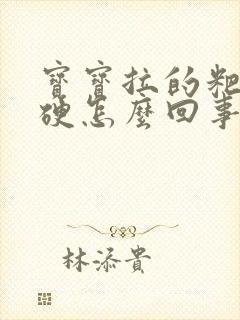 寶寶拉的粑
硬怎麼回事
林添貴